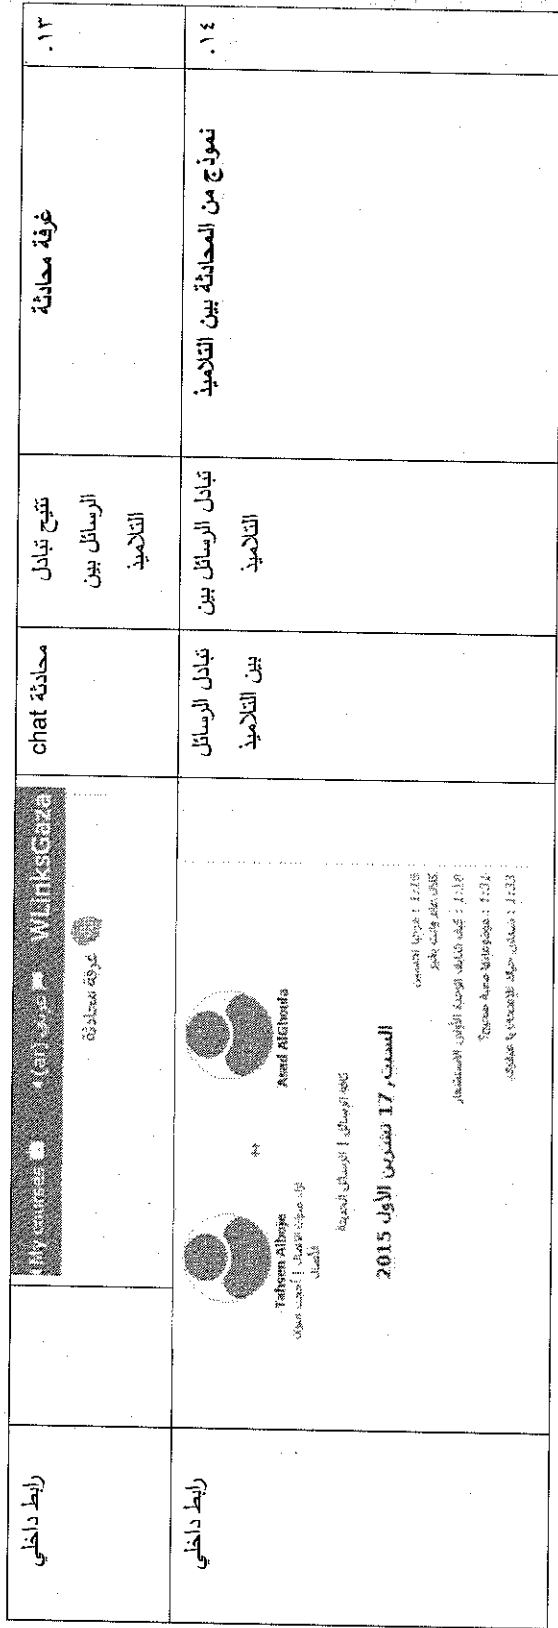 .١٣
غرفة محادثة
تتيح تبادل
الرسائل بين
التلاميذ
محادثة chat
My courses
WLinksGaza
غرفة محادثة
رابط داخلي
.١٤
نموذج من المحادثة بين التلاميذ
تبادل الرسائل بين
التلاميذ
تبادل الرسائل
بين التلاميذ
Tahseen Alboje
Asad AlGhoula
كافة الرسائل | الرسائل الحديثة
السبت, 17 تشرين الأول 2015
كل عام وانت بخير
رابط داخلي